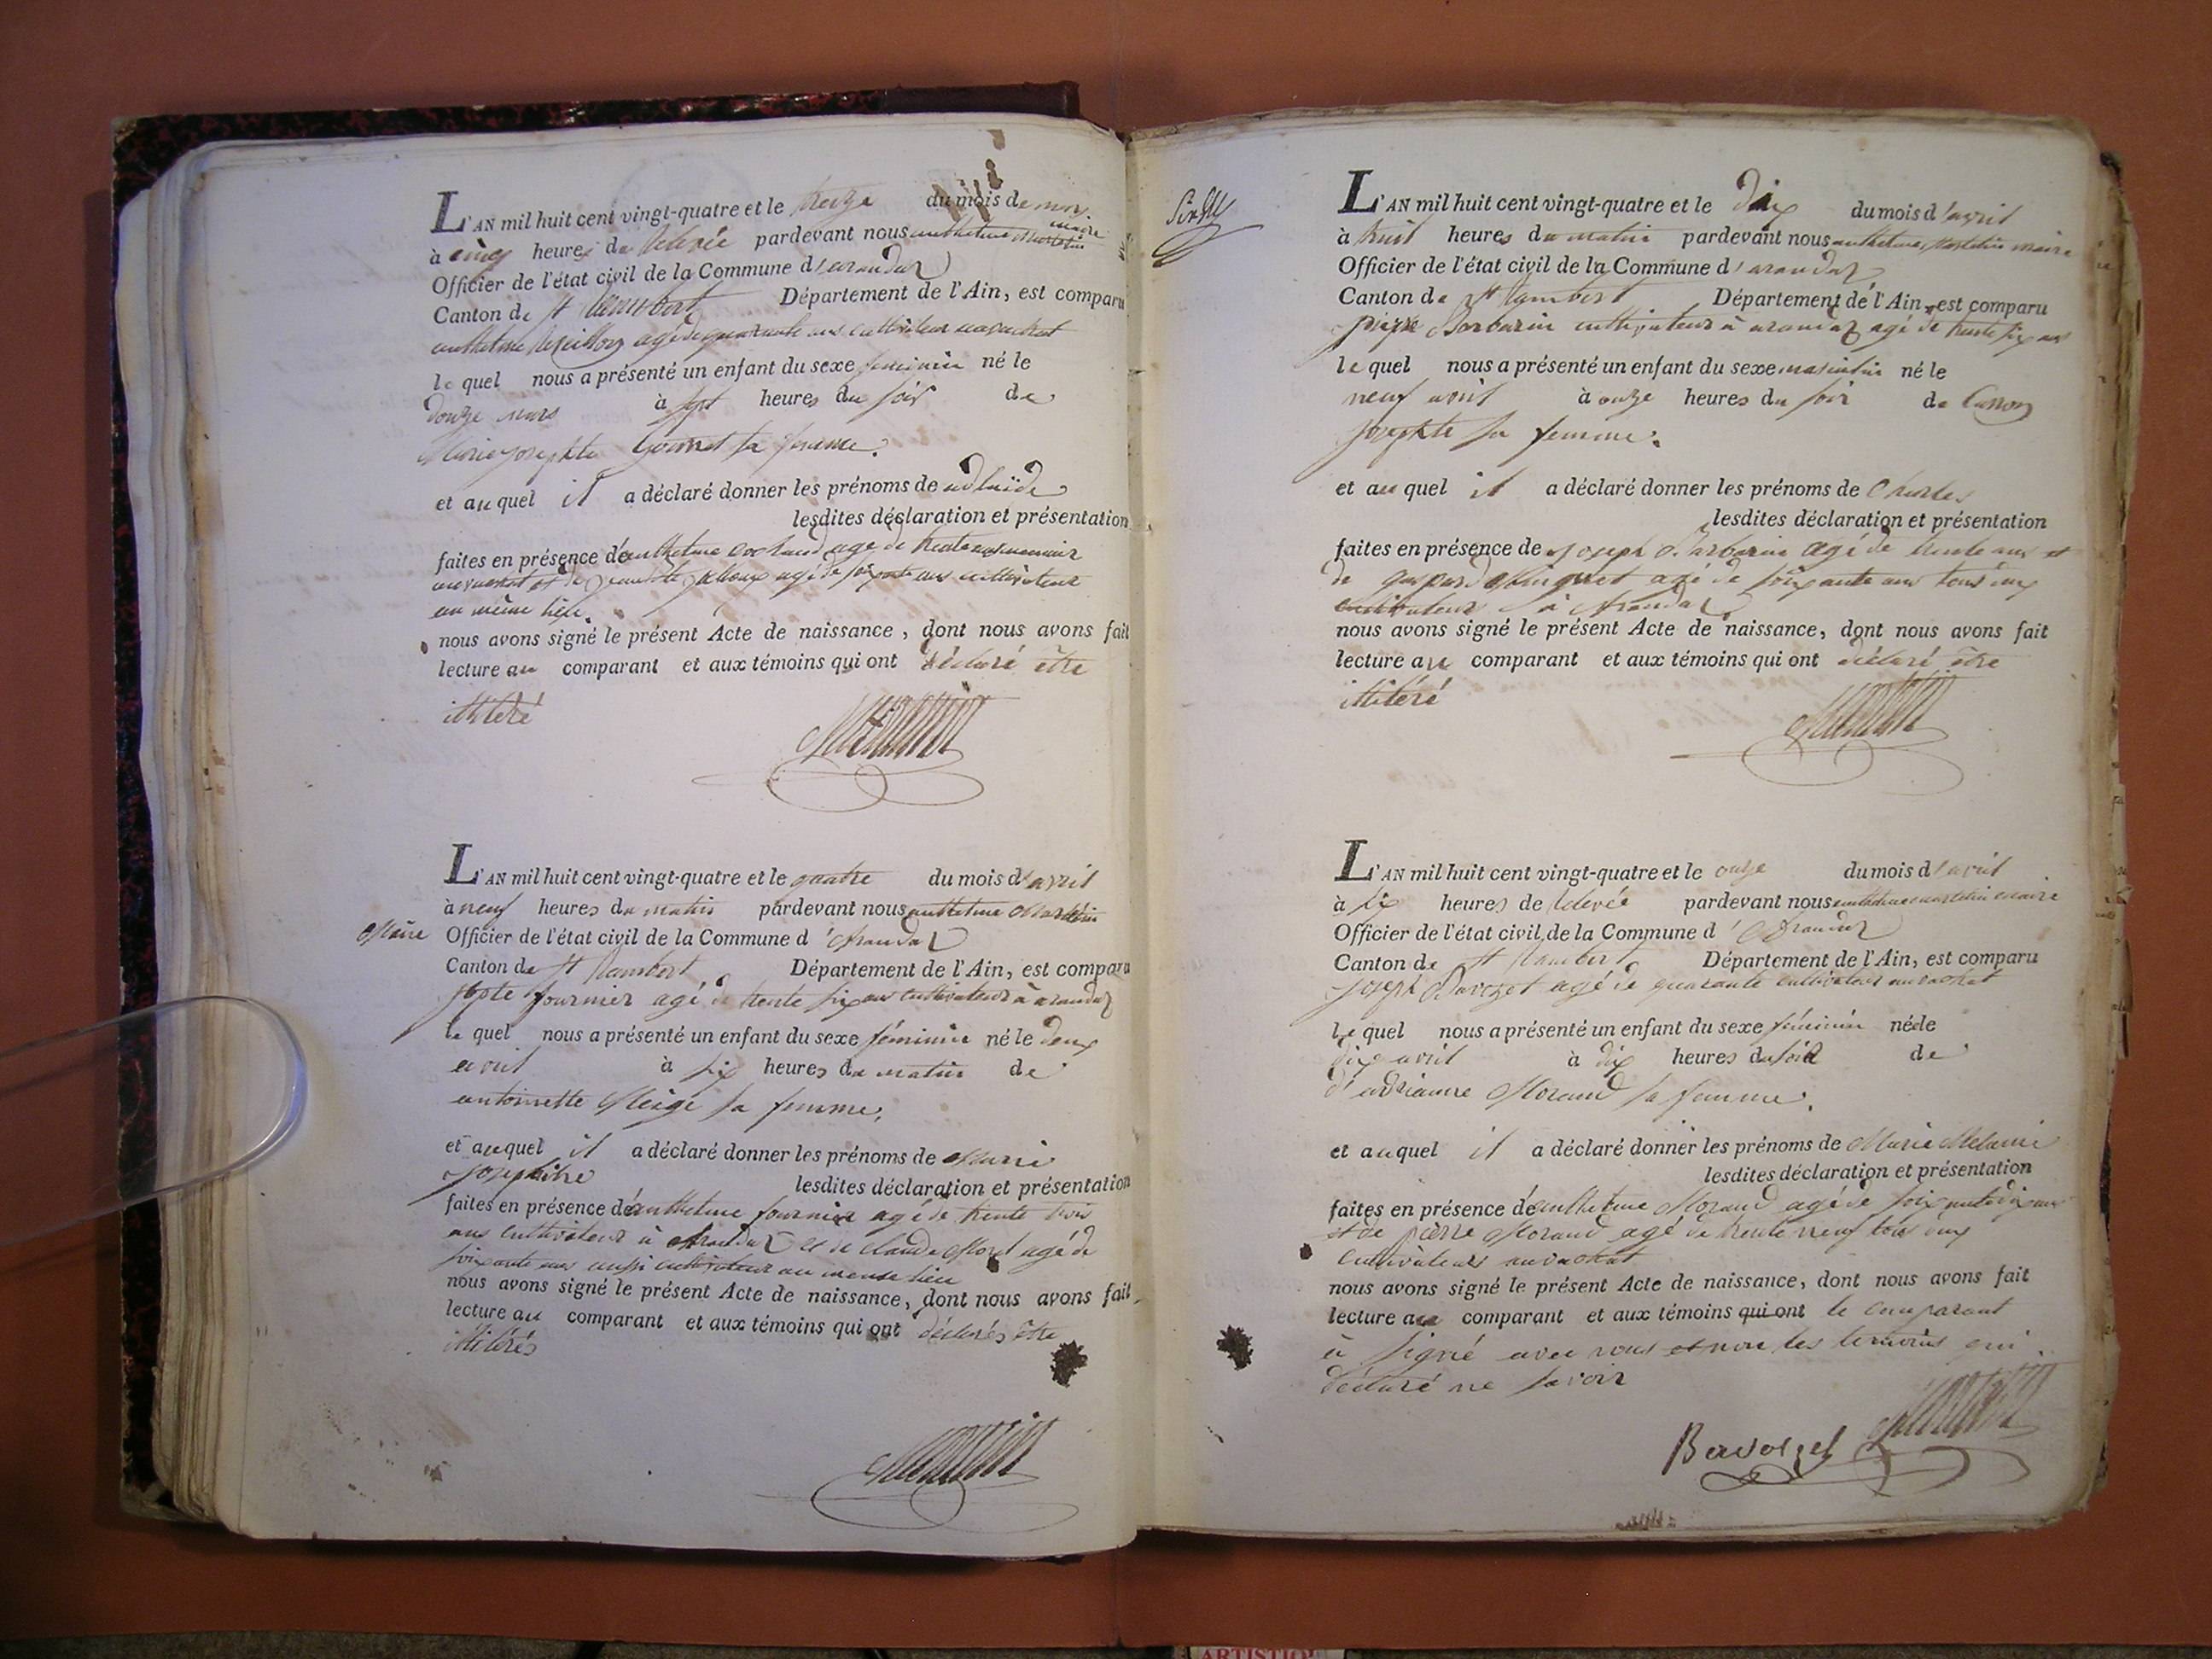 L'AN mil huit cent vingt-quatre et le treize du mois de mars
maire
à cinq heures de relevée pardevant nous anthelme Martelin
Officier de l'état civil de la Commune d'arandaz
Canton de St Rambert Département de l'Ain, est comparu
anthelme agé de quarante ans cultivateur
le quel nous a présenté un enfant du sexe feminin né le
douze mars à sept heures du soir de
Marie josephte sa femme.
et au quel il a déclaré donner les prénoms de adlaïde
lesdites déclaration et présentation
faites en présence d'anthelme agé de trente
et de agé de ans cultivateur
au même lieu.
nous avons signé le présent Acte de naissance, dont nous avons fait
lecture au comparant et aux témoins qui ont déclaré être
illitéré
L'AN mil huit cent vingt-quatre et le quatre du mois d'avril
à neuf heures du matin pardevant nous anthelme Martelin
Maire Officier de l'état civil de la Commune d'Arandaz
Canton de St Rambert Département de l'Ain, est comparu
fournier agé de trente six ans cultivateur à arandaz
le quel nous a présenté un enfant du sexe féminin né le deux
avril à six heures du matin de
antoinette sa femme,
et au quel il a déclaré donner les prénoms de Marie
Josephthe lesdites déclaration et présentation
faites en présence d'anthelme fournier agé de trente trois
ans cultivateur à Arandaz et de claude Morel agé de
soixante ans aussi cultivateur au meme lieu
nous avons signé le présent Acte de naissance, dont nous avons fait
lecture au comparant et aux témoins qui ont déclarés être
illitérés
L'AN mil huit cent vingt-quatre et le dix du mois d'avril
à huit heures du matin pardevant nous anthelme Martelin maire
Officier de l'état civil de la Commune d'arandaz
Canton de St Rambert Département de l'Ain, est comparu
pierre Barbarin cultivateur à arandaz agé de trente six ans
le quel nous a présenté un enfant du sexe masculin né le
neuf avril à onze heures du soir de
josephte sa femme.
et au quel il a déclaré donner les prénoms de Charles
lesdites déclaration et présentation
faites en présence de Joseph Barbarin agé de trente ans et
de gaspard agé de soixante ans tous deux
cultivateur à Arandaz
nous avons signé le présent Acte de naissance, dont nous avons fait
lecture au comparant et aux témoins qui ont déclaré être
illitéré
L'AN mil huit cent vingt-quatre et le onze du mois d'avril
à six heures de relevée pardevant nous anthelme martelin maire
Officier de l'état civil de la Commune d'Arandaz
Canton de St Rambert Département de l'Ain, est comparu
joseph agé de quarante cultivateur
le quel nous a présenté un enfant du sexe féminin né le
dix avril à dix heures du soir de
Morand sa femme.
et au quel il a déclaré donner les prénoms de Marie Melanie
lesdites déclaration et présentation
faites en présence d'anthelme Morand agé de soixante dix ans
et de pierre Morand agé de trente neuf tous deux
cultivateurs
nous avons signé le présent Acte de naissance, dont nous avons fait
lecture au comparant et aux témoins qui ont le comparant
à signé avec nous et non les temoins qui
déclaré ne savoir